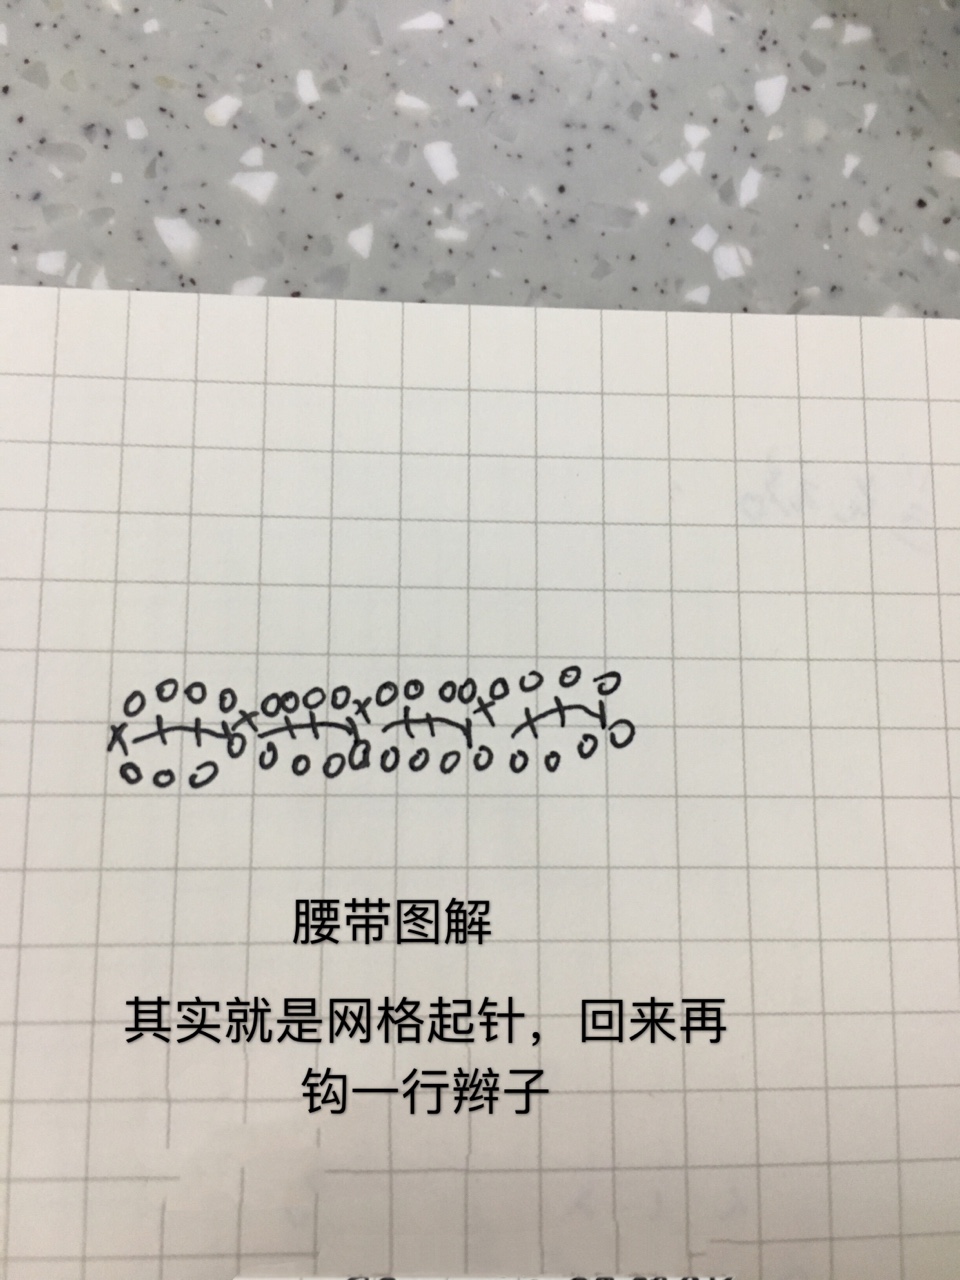 腰带图解
其实就是网格起针，回来再
钩一行辫子